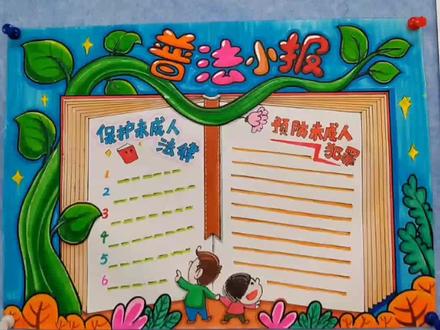 普法小报
保护未成人
法律
1
2
3
4
5
6
预防未成人
犯罪